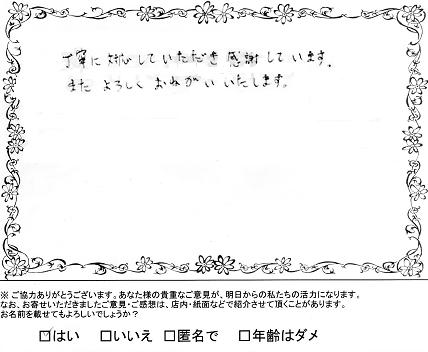 丁寧に対応していただき感謝しています。
また よろしく おねがい いたします。
※ ご協力ありがとうございます。あなた様の貴重なご意見が、明日からの私たちの活力になります。
なお、お寄せいただきましたご意見・ご感想は、店内・紙面などで紹介させて頂くことがあります。
お名前を載せてもよろしいでしょうか？
☑はい □いいえ □匿名で □年齢はダメ